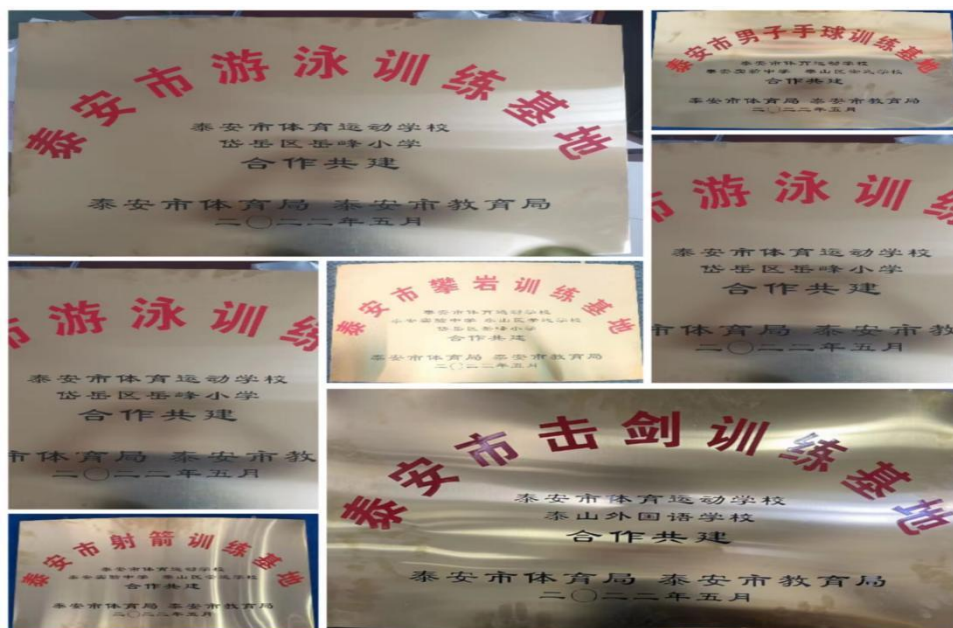 泰安市游泳训练基地
泰安市体育运动学校
岱岳区岳峰小学
合作共建
泰安市体育局 泰安市教育局
二〇二二年五月
泰安市男子手球训练基地
泰安市体育运动学校
泰安实验中学 泰山区
合作共建
泰安市体育局 泰安市教育局
二〇二二年五月
市游泳训练
泰安市体育运动学校
岱岳区岳峰小学
合作共建
市体育局 泰安市教
二〇二二年五月
市游泳训练
泰安市体育运动学校
岱岳区岳峰小学
合作共建
市体育局 泰安市教
二〇二二年五月
泰安市攀岩训练基地
泰安市体育运动学校
泰安实验中学 泰山区
岱岳区岳峰小学
合作共建
泰安市体育局 泰安市教育局
二〇二二年五月
泰安市击剑训练基地
泰安市体育运动学校
泰山外国语学校
合作共建
泰安市体育局 泰安市教育局
二〇二二年五月
泰安市射箭训练基地
泰安市体育运动学校
泰安实验中学 泰山区
合作共建
泰安市体育局 泰安市教育局
二〇二二年五月